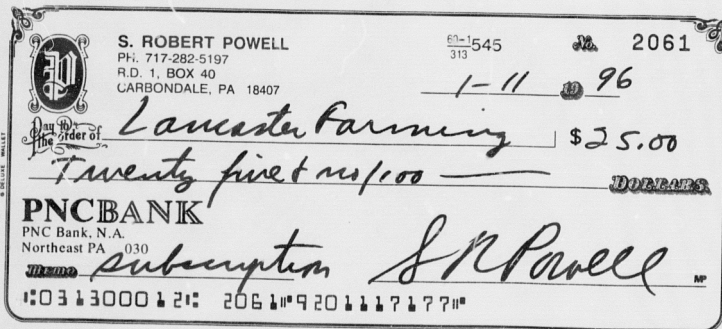 S. ROBERT POWELL
PH. 717-282-5197
R.D. 1, BOX 40
CARBONDALE, PA 18407
60-1545
313
No. 2061
1-11 19 96
Pay to the order of Lancaster Farming $25.00
Twenty five & no/100 DOLLARS
PNCBANK
PNC Bank, N.A.
Northeast PA 030
MEMO subscription S R Powell
MP
⑆031300012⑆ 2061⑈9201117177⑈
© DELUXE WALLET